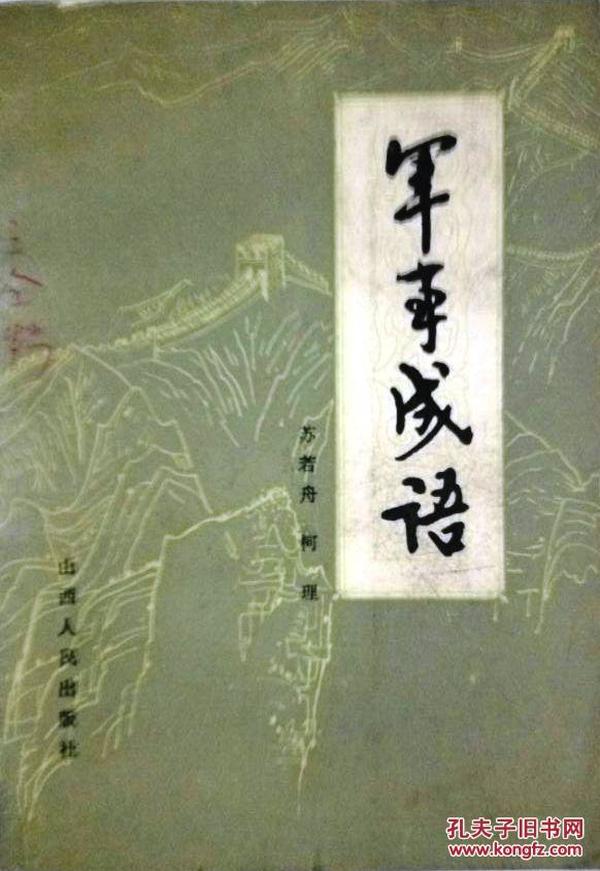 軍事成语
苏若舟 柯理
山西人民出版社
孔夫子旧书网
www.kongfz.com